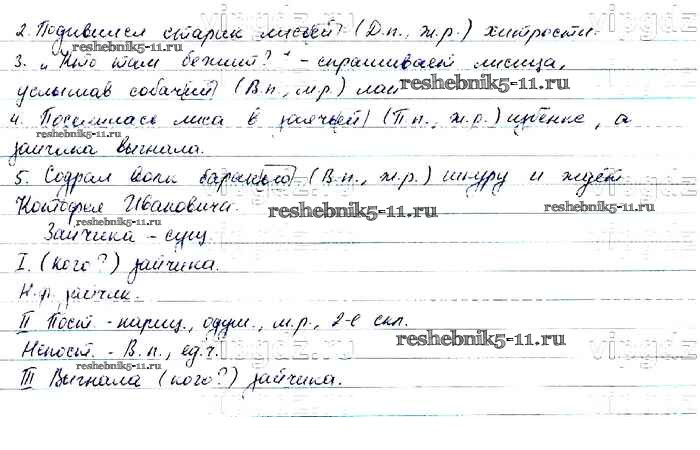 2. Подивился старик лисьей (Д.п., ж.р.) хитрости.
3. „Кто там бежит?" - спрашивает лисица,
услышав собачий (В.п., м.р.) лай
4. Поселилась лиса в заячьей (П.п., ж.р.) избёнке, а
зайчика выгнала.
5. Содрал волк баранью (В.п., ж.р.) шкуру и ждёт
Котофея Ивановича.
Зайчика - сущ.
I. (кого?) зайчика.
Н.ф. зайчик.
II Пост. - нариц., одуш., м.р., 2-е скл.
Непост. - В.п., ед.ч.
III Выгнала (кого?) зайчика.
reshebnik5-11.ru
reshebnik5-11.ru
reshebnik5-11.ru
reshebnik5-11.ru
reshebnik5-11.ru
reshebnik5-11.ru
reshebnik5-11.ru
reshebnik5-11.ru